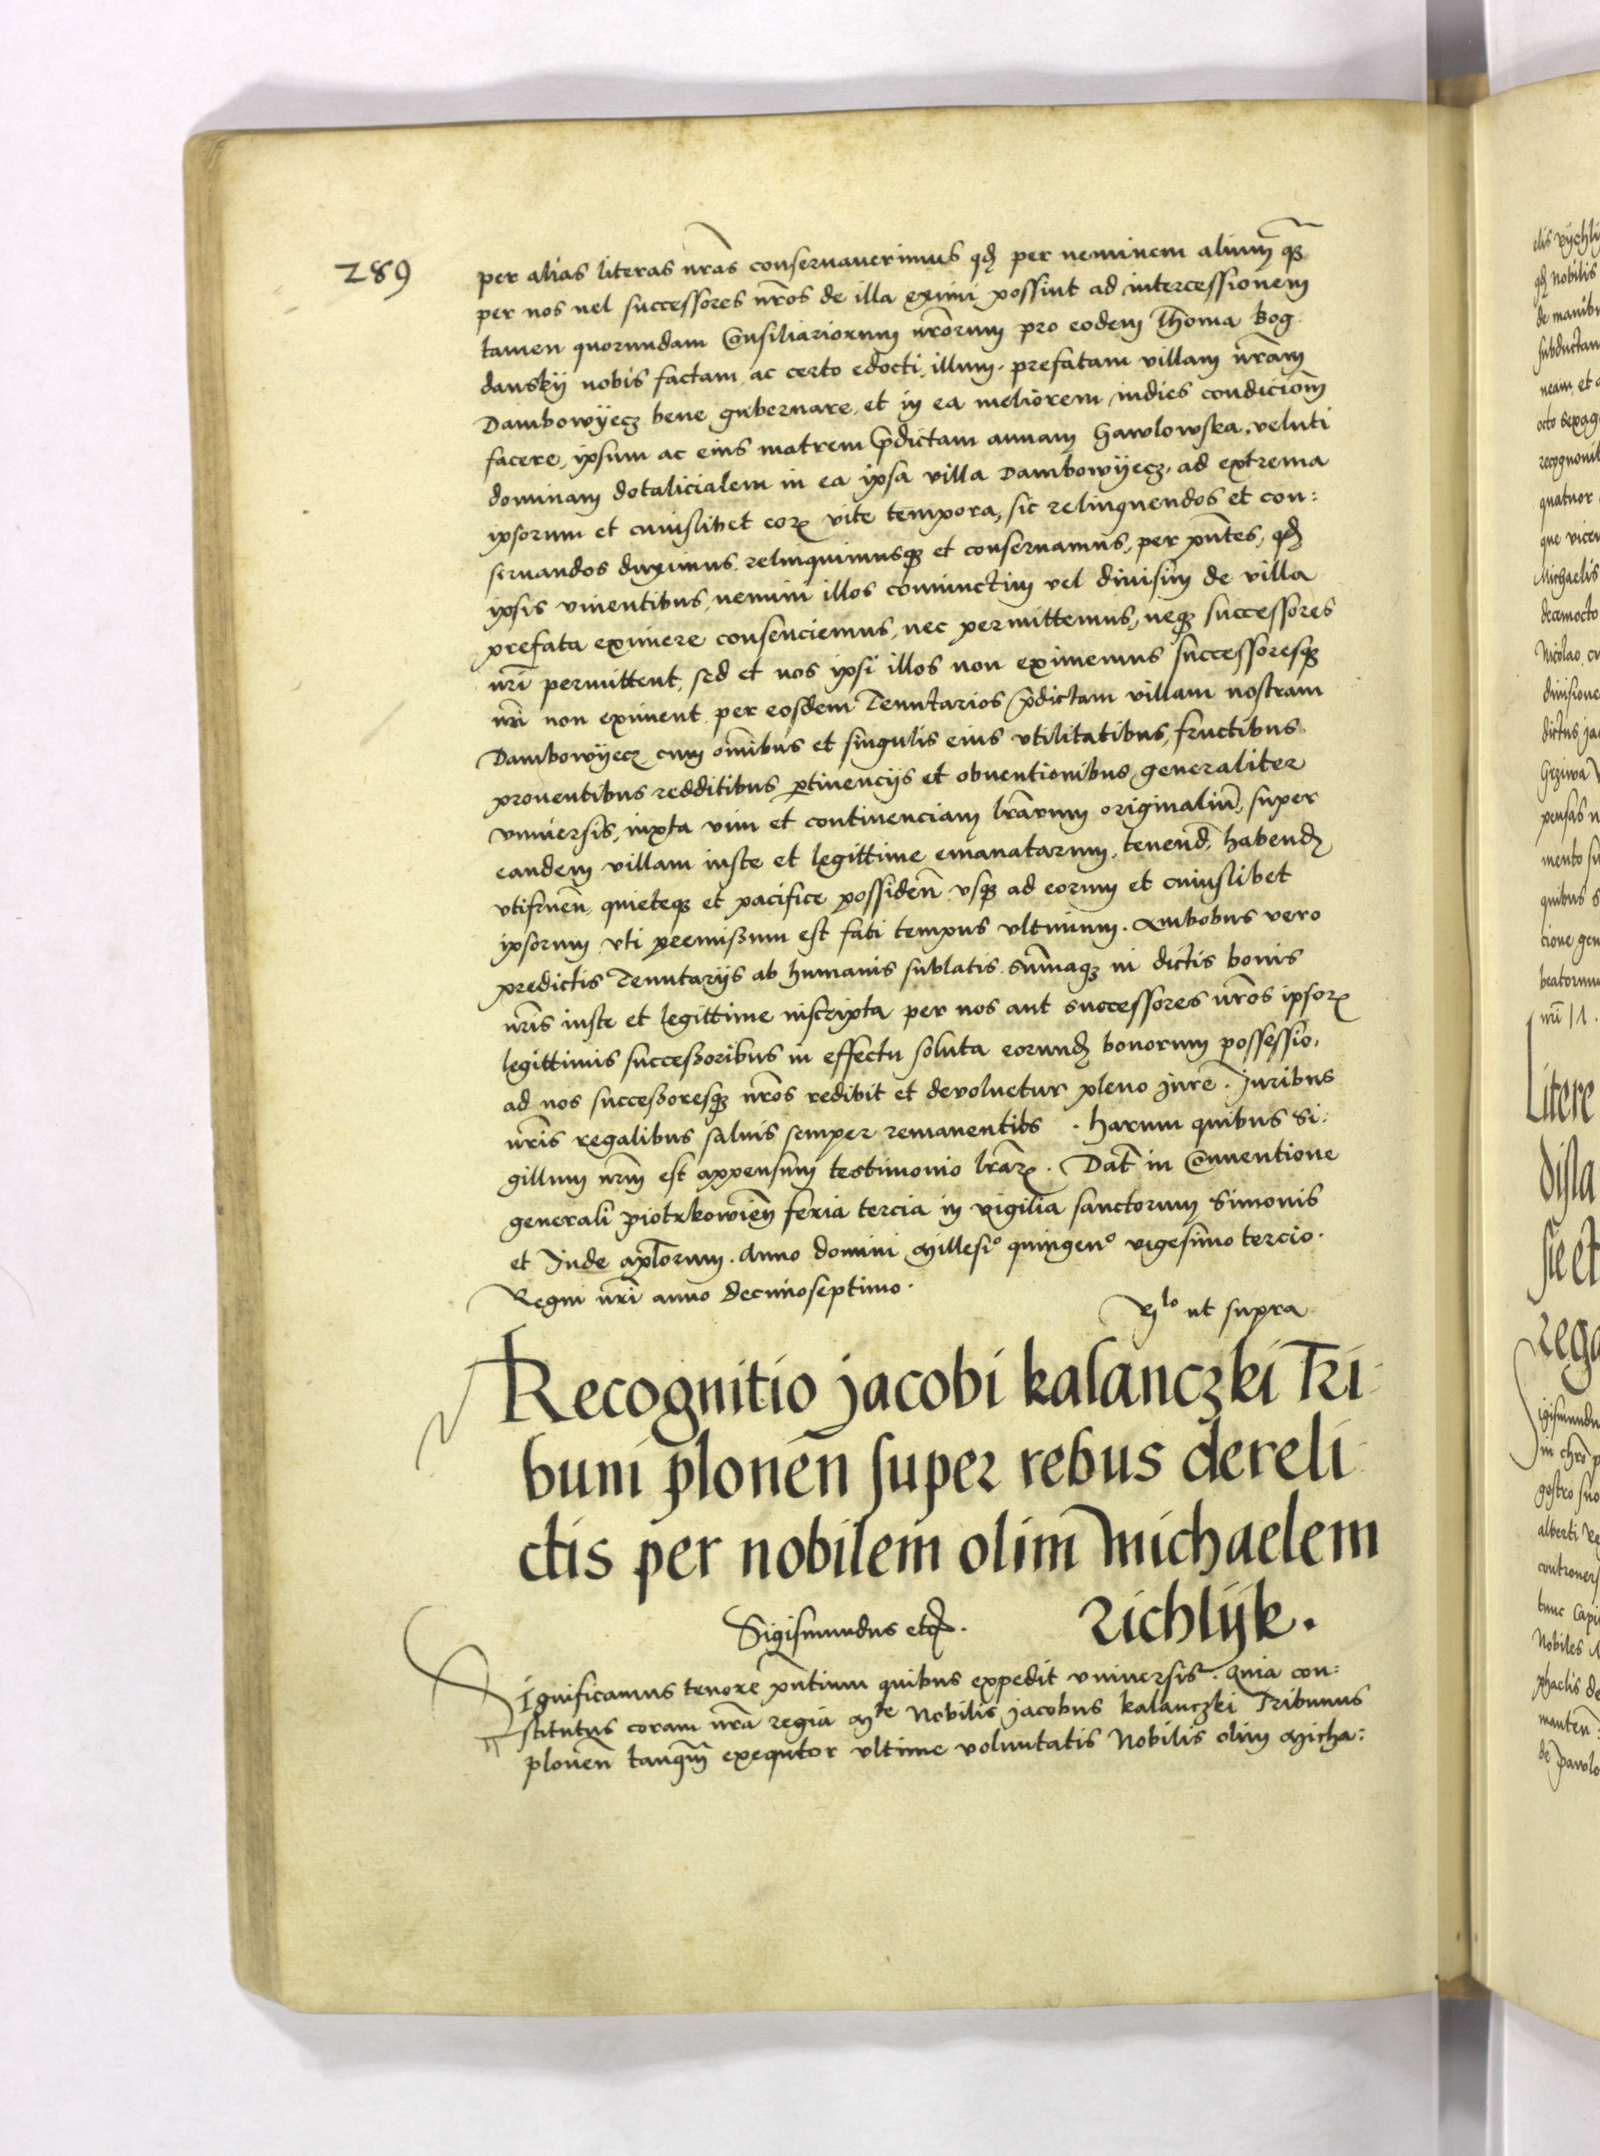 289
per alias literas nr̃as conseruauerimus qd̛ per neminem alium q̃ꝫ
per nos uel successores nr̃os de illa eximi possint ad intercessionem
tamen quorundam Consiliariorum nr̃orum pro eodem Thoma Bog
danskÿ nobis factam, ac certo edocti, illum prefatam villam nr̃am
Dambowÿecz bene gubernare, et in ea meliorem indies condicioñ
facere, ipsum ac eius matrem p̃dictam annam Gawlowska, veluti
dominam dotalicialem in ea ipsa villa Dambowÿecz, ad extrema
ipsorum et cuiuslibet eoꝝ vite tempora, sic relinquendos et con:
seruandos duximus, relinquimusqꝫ et conseruamus, per pñtes, qd̛
ipsis viuentibus, nemini illos coniunctim vel diuisim de villa
prefata eximere consenciemus, nec permittemus, neqꝫ successores
nr̃i permittent, sed et nos ipsi illos non eximemus successoresqꝫ
nr̃i non eximent per eosdem Tenutarios p̃dictam villam nostram
Dambowÿecz cum om̃ibus et singulis eius vtilitatibus, fructibus
prouentibus redditibus ꝑtinencijs et obuentionibus generaliter
vniuersis, iuxta vim et continenciam lr̃arum originaliũ, super
eandem villam iuste et legittime emanatarum, tenend̃, habend̛
vtifrueñ, quieteqꝫ et pacifice possideñ vsqꝫ ad eorum et cuiuslibet
ipsorum vti premissum est fati tempus vltimum. Ambobus vero
predictis Tenutarijs ab humanis sublatis sum̃aqꝫ in dictis bonis
nr̃is iuste et legittime inscripta per nos aut successores nr̃os ipsoꝝ
legittimis successoribus in effectu soluta eorund̛ bonorum possessio,
ad nos successoresqꝫ nr̃os redibit et deuoluetur pleno jure. Juribus
nr̃is regalibus saluis semper remanentibs. Harum quibus Si:
gillum nr̃m est appensum testimonio lr̃aꝝ. Dat̃ in Conuentione
generali Piotrkowieñ feria tercia in vigilia sanctorum Simonis
et Jude apl̃orum. Anno domini Millesi° quingen° vigesimo tercio.
Regni nr̃i anno decimoseptimo.
Rlo ut supra
Recognitio jacobi kalanczki Tri
buni ploneñ super rebus dereli
ctis per nobilem olim michaelem
Richlÿk.
Sigismundus etc.
Significamus tenore pñtium quibus expedit vniuersis. Quia con:
stitutus coram nr̃a regia Mte Nobilis jacobus kalanczki Tribunus
ploneñ tanq̃m exequtor vltime voluntatis Nobilis olim Micha: